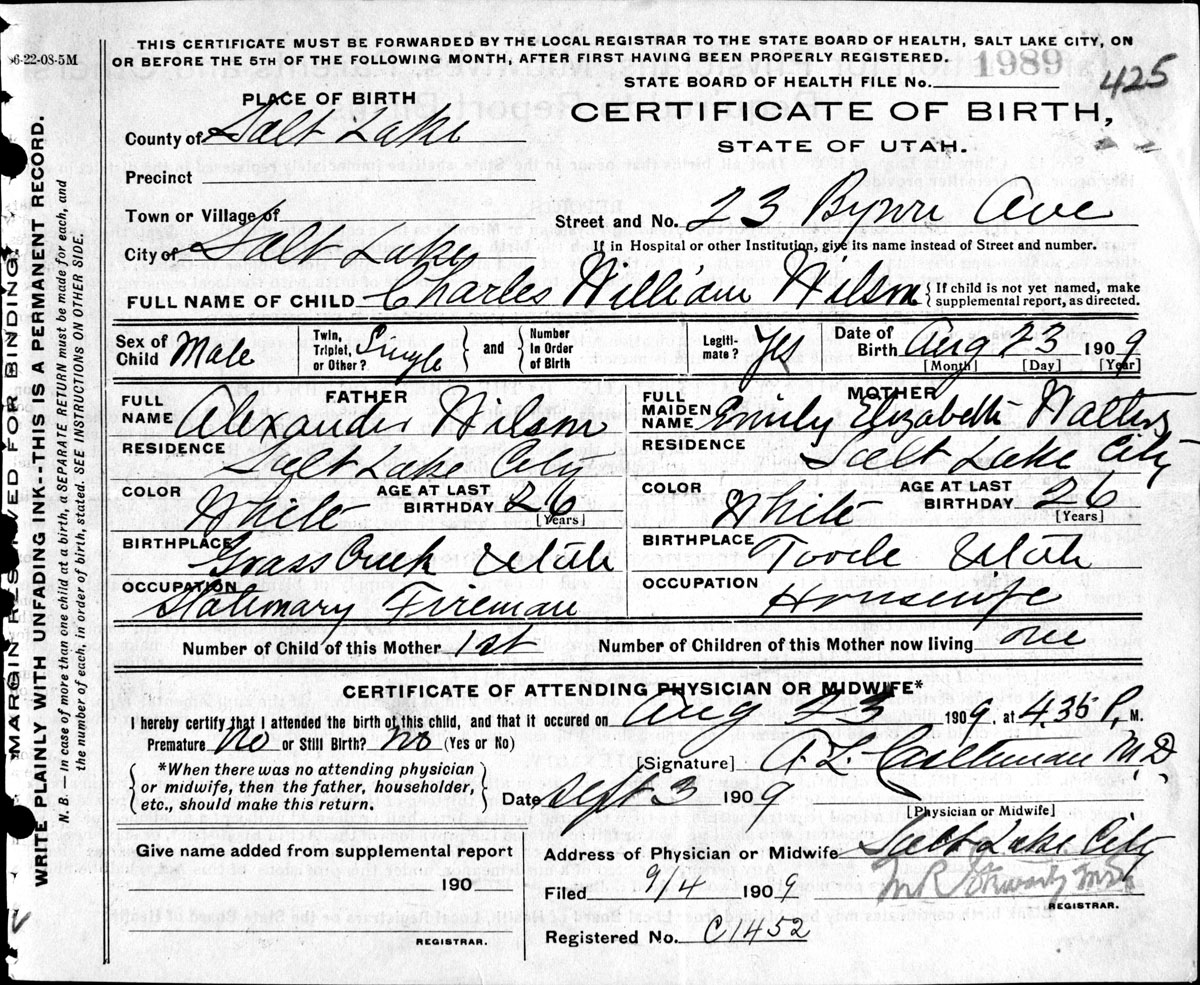 6-22-08-5M
THIS CERTIFICATE MUST BE FORWARDED BY THE LOCAL REGISTRAR TO THE STATE BOARD OF HEALTH, SALT LAKE CITY, ON
OR BEFORE THE 5TH OF THE FOLLOWING MONTH, AFTER FIRST HAVING BEEN PROPERLY REGISTERED.
1989 425
STATE BOARD OF HEALTH FILE No.
CERTIFICATE OF BIRTH,
STATE OF UTAH.
PLACE OF BIRTH
County of Salt Lake
Precinct
Town or Village of
Street and No. 23 Ave
If in Hospital or other Institution, give its name instead of Street and number.
City of Salt Lake
FULL NAME OF CHILD Charles William Wilson { If child is not yet named, make supplemental report, as directed.
Sex of Child Male Twin, Triplet, or Other? Single } and { Number in Order of Birth Legiti-mate? Yes Date of Birth Aug 23 1909
[Month] [Day] [Year]
FATHER
FULL NAME Alexander Wilson
RESIDENCE Salt Lake City
COLOR White AGE AT LAST BIRTHDAY 26 [Years]
BIRTHPLACE Grass Creek Utah
OCCUPATION Stationary Fireman
MOTHER
FULL MAIDEN NAME Emily Elizabeth Walters
RESIDENCE Salt Lake City
COLOR White AGE AT LAST BIRTHDAY 26 [Years]
BIRTHPLACE Tooele Utah
OCCUPATION Housewife
Number of Child of this Mother 1st Number of Children of this Mother now living one
CERTIFICATE OF ATTENDING PHYSICIAN OR MIDWIFE*
I hereby certify that I attended the birth of this child, and that it occured on Aug 23 1909, at 4.35 P. M.
Premature No or Still Birth? No (Yes or No)
{ *When there was no attending physician
or midwife, then the father, householder,
etc., should make this return. }
[Signature] M.D.
Date Sept 3 1909
[Physician or Midwife]
Give name added from supplemental report
190
REGISTRAR.
Address of Physician or Midwife Salt Lake City
Filed 9/4 1909
REGISTRAR.
Registered No. C1452
MARGIN RESERVED FOR BINDING.
WRITE PLAINLY WITH UNFADING INK--THIS IS A PERMANENT RECORD.
N. B.—in case of more than one child at a birth, a SEPARATE RETURN must be made for each, and
the number of each, in order of birth, stated. SEE INSTRUCTIONS ON OTHER SIDE.